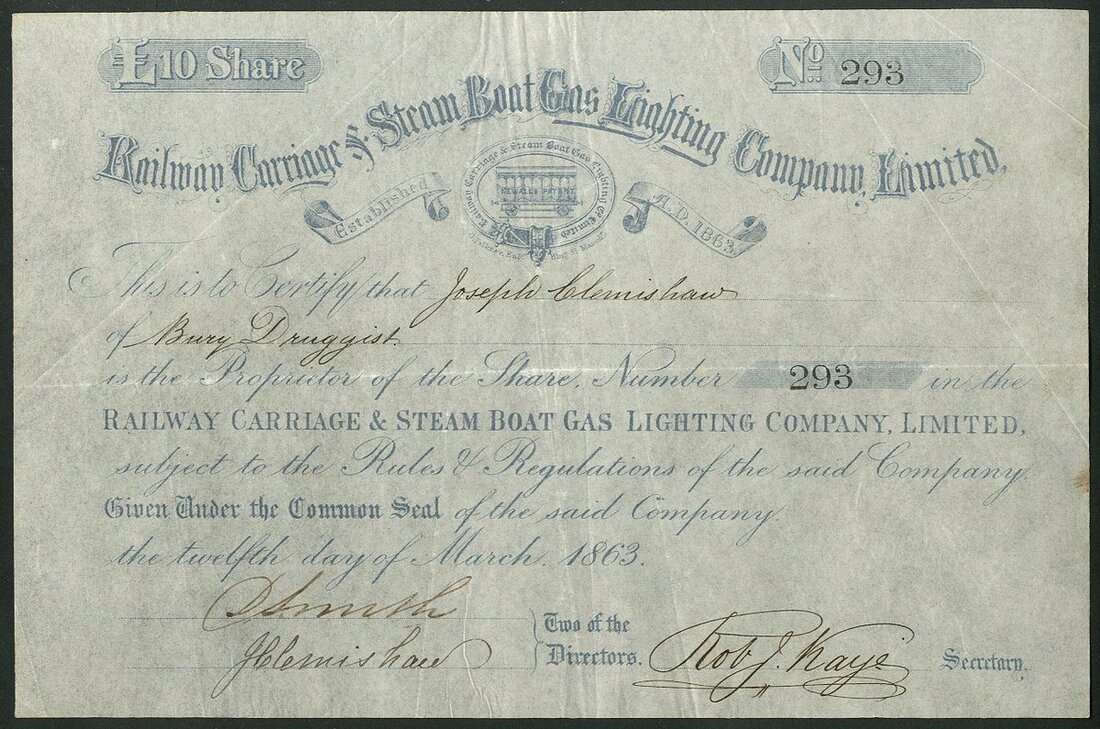 £10 Share
No 293
Railway Carriage & Steam Boat Gas Lighting Company, Limited,
Established
A.D. 1863
Railway Carriage & Steam Boat Gas Lighting Co Limited
NEWALLS PATENT
This is to Certify that Joseph Clemishaw
of Bury Druggist
is the Proprietor of the Share, Number 293 in the
RAILWAY CARRIAGE & STEAM BOAT GAS LIGHTING COMPANY, LIMITED,
subject to the Rules & Regulations of the said Company.
Given Under the Common Seal of the said Company.
the twelfth day of March, 1863.
D Smith
J Clemishaw
Two of the
Directors.
Rob J. Kaye
Secretary.